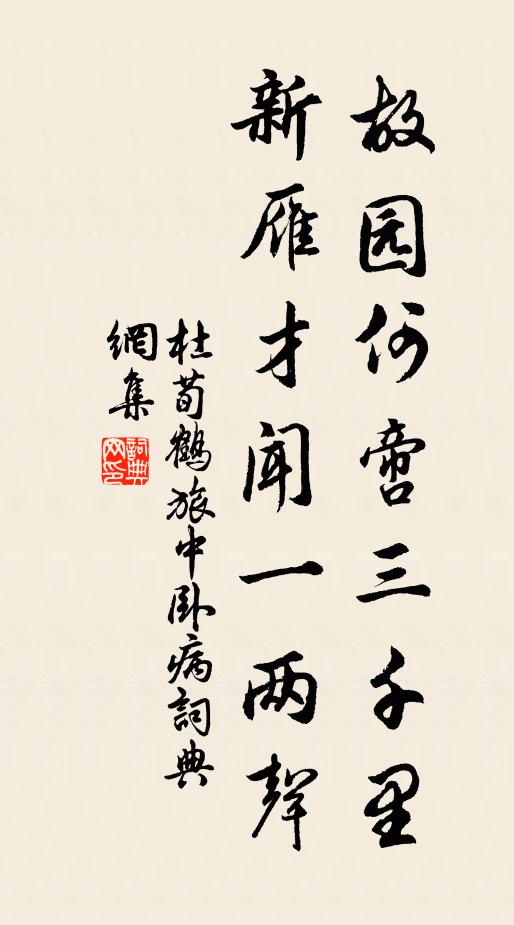 故园何啻三千里
新雁才闻一两聲
杜荀鶴旅中卧病詞典
網集
詞典
网印